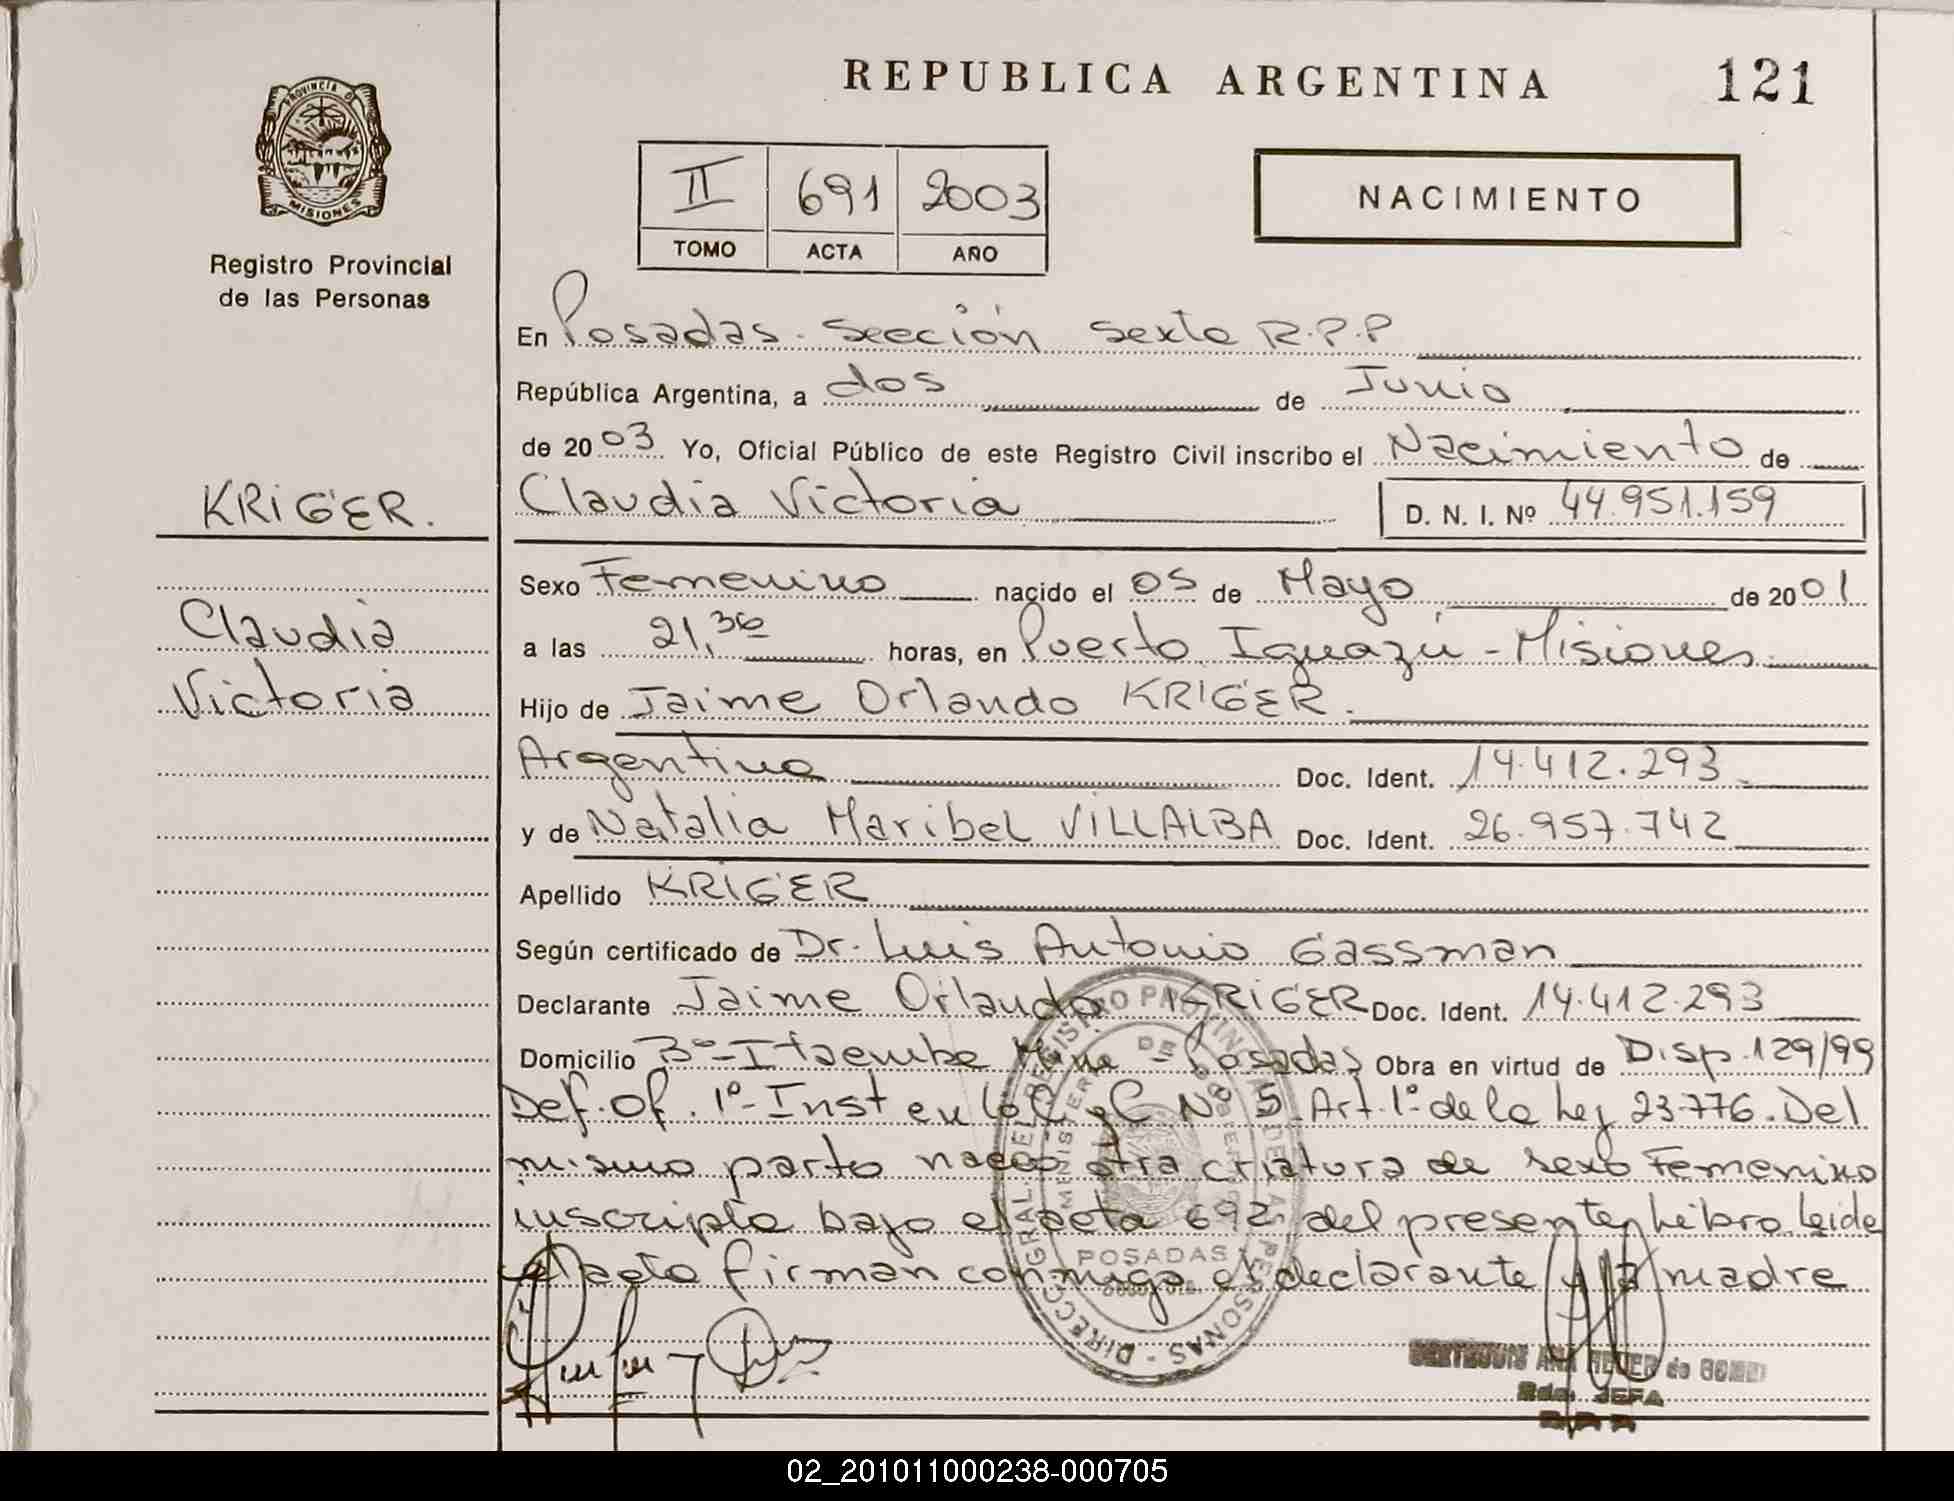 REPUBLICA ARGENTINA 121
PROVINCIA DE
MISIONES
Registro Provincial
de las Personas
II 691 2003
TOMO ACTA AÑO
NACIMIENTO
En Posadas. Sección Sexta R.P.P
República Argentina, a dos de Junio
de 2003 Yo, Oficial Público de este Registro Civil inscribo el Nacimiento de
KRIGER.
Claudia Victoria D. N. I. Nº 44.951.159
Sexo Femenino nacido el 05 de Mayo de 2001
Claudia
a las 21,36 horas, en Puerto Iguazú - Misiones
Victoria
Hijo de Jaime Orlando KRIGER.
Argentino Doc. Ident. 14.412.293
y de Natalia Maribel VILLALBA Doc. Ident. 26.957.742
Apellido KRIGER
Según certificado de Dr. Luis Antonio Gassman
Declarante Jaime Orlando KRIGER Doc. Ident. 14.412.293
Domicilio Bº-Itaembe Mini - Posadas Obra en virtud de Disp. 129/99
Def. Of. 1º-Inst en lo C y C Nº 5. Art. 1º de la Ley 23.776. Del
mismo parto nacio otra criatura de sexo Femenino
inscripta bajo el acta 692 del presente Libro. Leida
el acta firman conmigo el declarante y la madre
POSADAS
JEFA
02_201011000238-000705